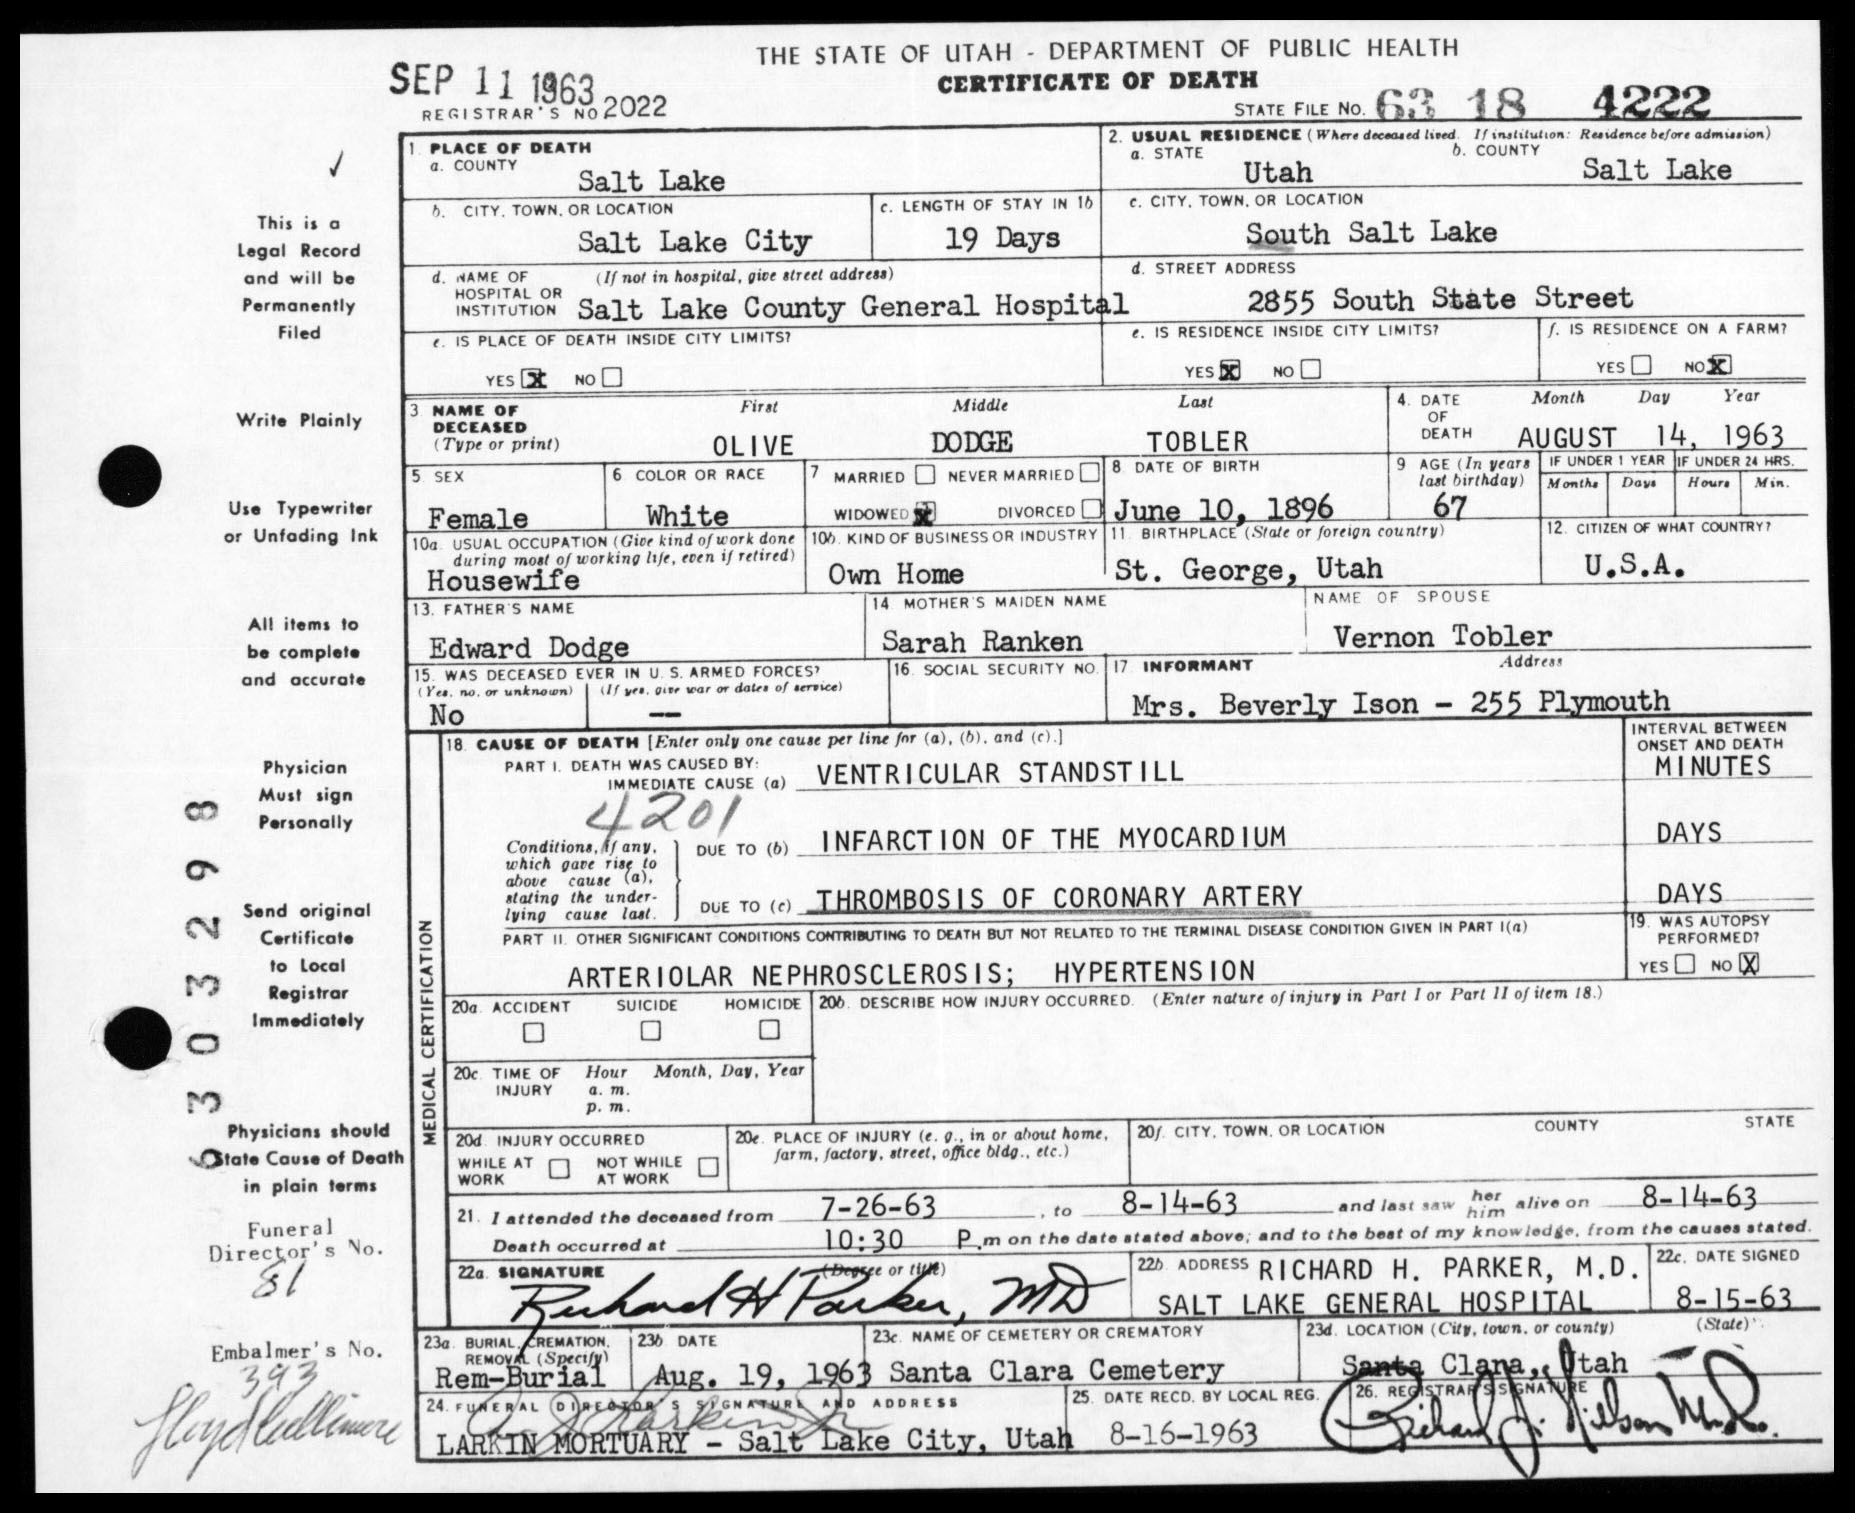 THE STATE OF UTAH - DEPARTMENT OF PUBLIC HEALTH
CERTIFICATE OF DEATH
SEP 11 1963
REGISTRAR'S NO 2022
STATE FILE NO. 63 18 4222
This is a
Legal Record
and will be
Permanently
Filed
Write Plainly
Use Typewriter
or Unfading Ink
All items to
be complete
and accurate
Physician
Must sign
Personally
Send original
Certificate
to Local
Registrar
Immediately
Physicians should
State Cause of Death
in plain terms
Funeral
Director's No.
81
Embalmer's No.
393
Lloyd Cullimore
63032998
1. PLACE OF DEATH
a. COUNTY
Salt Lake
b. CITY, TOWN, OR LOCATION
Salt Lake City
c. LENGTH OF STAY IN 1b
19 Days
d. NAME OF HOSPITAL OR INSTITUTION (If not in hospital, give street address)
Salt Lake County General Hospital
e. IS PLACE OF DEATH INSIDE CITY LIMITS?
YES X NO
2. USUAL RESIDENCE (Where deceased lived. If institution: Residence before admission)
a. STATE
Utah
b. COUNTY
Salt Lake
c. CITY, TOWN, OR LOCATION
South Salt Lake
d. STREET ADDRESS
2855 South State Street
e. IS RESIDENCE INSIDE CITY LIMITS?
YES X NO
f. IS RESIDENCE ON A FARM?
YES NO X
3. NAME OF DECEASED (Type or print)
First Middle Last
OLIVE DODGE TOBLER
4. DATE OF DEATH
Month Day Year
AUGUST 14, 1963
5. SEX
Female
6. COLOR OR RACE
White
7. MARRIED NEVER MARRIED
WIDOWED X DIVORCED
8. DATE OF BIRTH
June 10, 1896
9. AGE (In years last birthday)
67
IF UNDER 1 YEAR
Months Days
IF UNDER 24 HRS.
Hours Min.
10a. USUAL OCCUPATION (Give kind of work done during most of working life, even if retired)
Housewife
10b. KIND OF BUSINESS OR INDUSTRY
Own Home
11. BIRTHPLACE (State or foreign country)
St. George, Utah
12. CITIZEN OF WHAT COUNTRY?
U.S.A.
13. FATHER'S NAME
Edward Dodge
14. MOTHER'S MAIDEN NAME
Sarah Ranken
NAME OF SPOUSE
Vernon Tobler
15. WAS DECEASED EVER IN U. S. ARMED FORCES?
(Yes, no, or unknown) (If yes, give war or dates of service)
No --
16. SOCIAL SECURITY NO.
17. INFORMANT Address
Mrs. Beverly Ison - 255 Plymouth
MEDICAL CERTIFICATION
18. CAUSE OF DEATH [Enter only one cause per line for (a), (b), and (c).]
INTERVAL BETWEEN ONSET AND DEATH
PART I. DEATH WAS CAUSED BY:
IMMEDIATE CAUSE (a) VENTRICULAR STANDSTILL MINUTES
4201
Conditions, if any, which gave rise to above cause (a), stating the underlying cause last.
DUE TO (b) INFARCTION OF THE MYOCARDIUM DAYS
DUE TO (c) THROMBOSIS OF CORONARY ARTERY DAYS
PART II. OTHER SIGNIFICANT CONDITIONS CONTRIBUTING TO DEATH BUT NOT RELATED TO THE TERMINAL DISEASE CONDITION GIVEN IN PART I(a)
ARTERIOLAR NEPHROSCLEROSIS; HYPERTENSION
19. WAS AUTOPSY PERFORMED?
YES NO X
20a. ACCIDENT SUICIDE HOMICIDE
20b. DESCRIBE HOW INJURY OCCURRED. (Enter nature of injury in Part I or Part II of item 18.)
20c. TIME OF INJURY Hour Month, Day, Year
a. m.
p. m.
20d. INJURY OCCURRED
WHILE AT WORK NOT WHILE AT WORK
20e. PLACE OF INJURY (e. g., in or about home, farm, factory, street, office bldg., etc.)
20f. CITY, TOWN, OR LOCATION COUNTY STATE
21. I attended the deceased from 7-26-63, to 8-14-63 and last saw her him alive on 8-14-63
Death occurred at 10:30 P.m on the date stated above; and to the best of my knowledge, from the causes stated.
22a. SIGNATURE (Degree or title)
Richard H Parker, MD
22b. ADDRESS RICHARD H. PARKER, M.D.
SALT LAKE GENERAL HOSPITAL
22c. DATE SIGNED
8-15-63
23a. BURIAL, CREMATION, REMOVAL (Specify)
Rem-Burial
23b. DATE
Aug. 19, 1963
23c. NAME OF CEMETERY OR CREMATORY
Santa Clara Cemetery
23d. LOCATION (City, town, or county) (State)
Santa Clara, Utah
24. FUNERAL DIRECTOR'S SIGNATURE AND ADDRESS
LARKIN MORTUARY - Salt Lake City, Utah
25. DATE RECD. BY LOCAL REG.
8-16-1963
26. REGISTRAR'S SIGNATURE
Richard J. Nielson M.D.